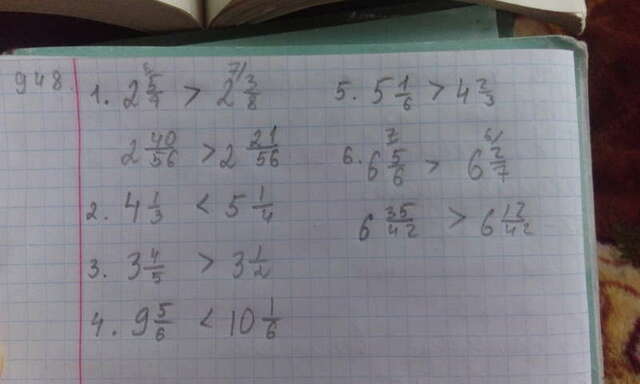 948.
1. 2 5/7 > 2 3/8
2 40/56 > 2 21/56
2. 4 1/3 < 5 1/4
3. 3 4/5 > 3 1/2
4. 9 5/6 < 10 1/6
5. 5 1/6 > 4 2/3
6. 6 5/6 > 6 2/7
6 35/42 > 6 12/42